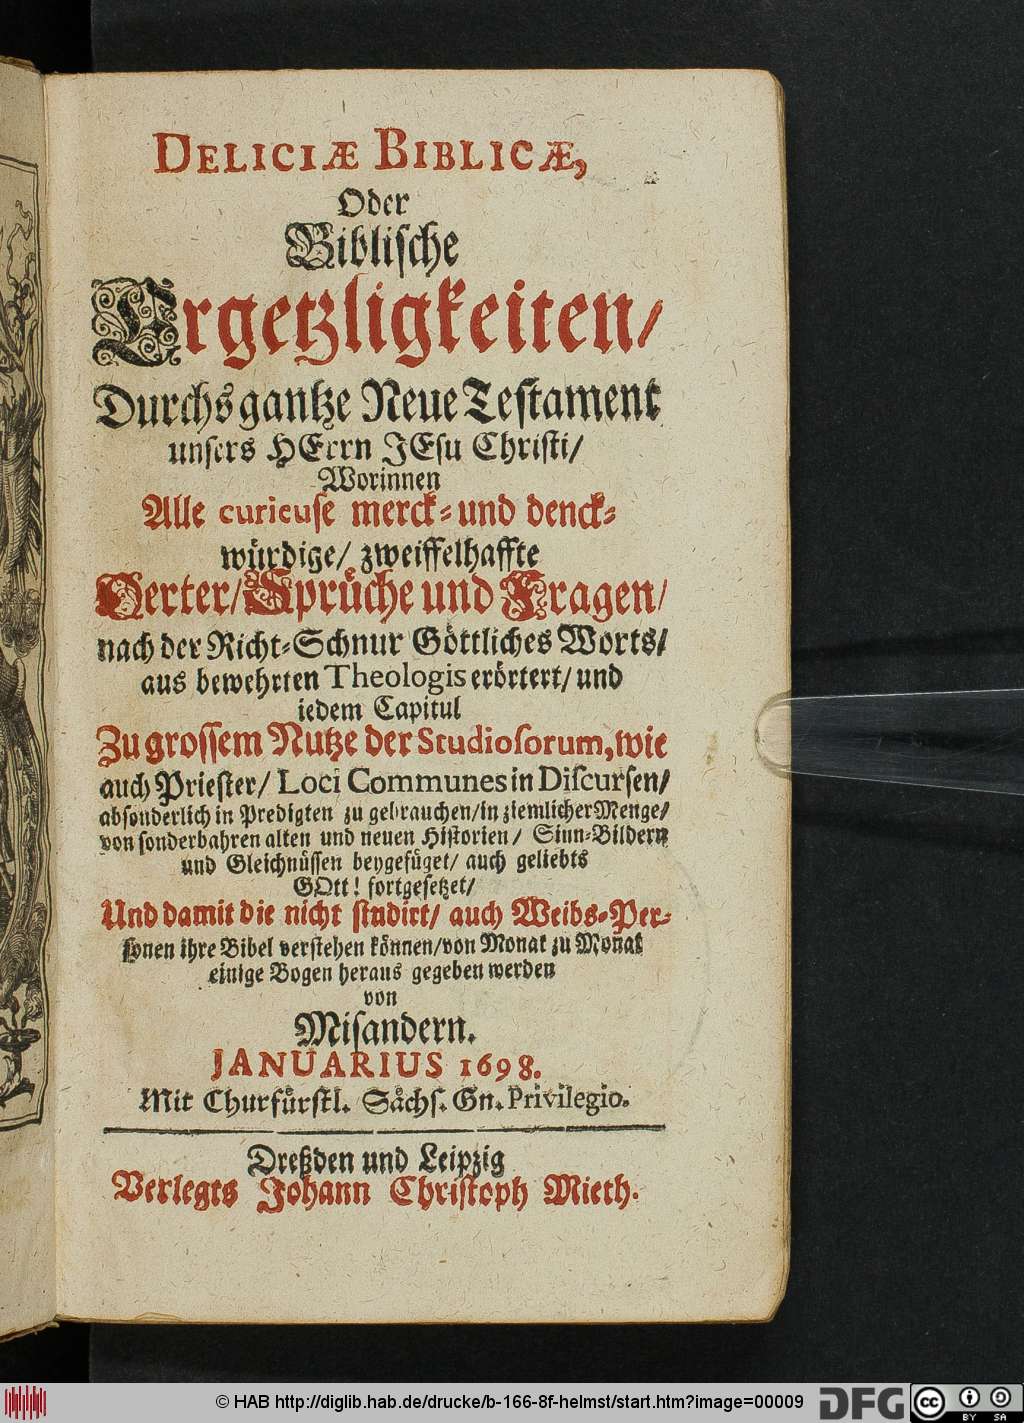 DELICIÆ BIBLICÆ,
Oder
Biblische
Ergetzligkeiten/
Durchs gantze Neue Testament
unsers HErrn JEsu Christi/
Worinnen
Alle curieuse merck- und denck-
würdige/ zweiffelhaffte
Oerter/ Sprüche und Fragen/
nach der Richt-Schnur Göttliches Worts/
aus bewehrten Theologis erörtert/ und
iedem Capitul
Zu grossem Nutze der Studiosorum, wie
auch Priester/ Loci Communes in Discursen/
absonderlich in Predigten zu gebrauchen/ in ziemlicher Menge/
von sonderbahren alten und neuen Historien/ Sinn-Bildern
und Gleichnüssen beygefüget/ auch geliebts
GOtt! fortgesetzet/
Und damit die nicht studirt/ auch Weibs-Per-
sonen ihre Bibel verstehen können/ von Monat zu Monat
einige Bogen heraus gegeben werden
von
Misandern.
JANUARIUS 1698.
Mit Churfürstl. Sächs. Gn. Privilegio.
Dreßden und Leipzig
Verlegts Johann Christoph Mieth.
© HAB http://diglib.hab.de/drucke/b-166-8f-helmst/start.htm?image=00009
DFG
cc BY SA